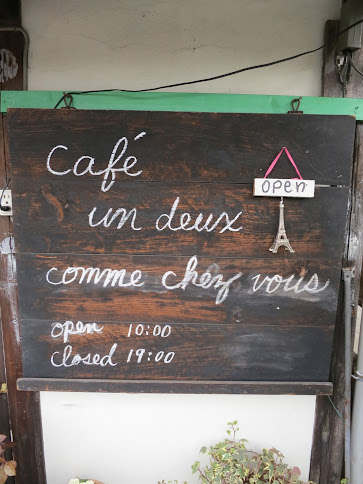 café
open
un deux
comme chez vous
open 10:00
closed 19:00